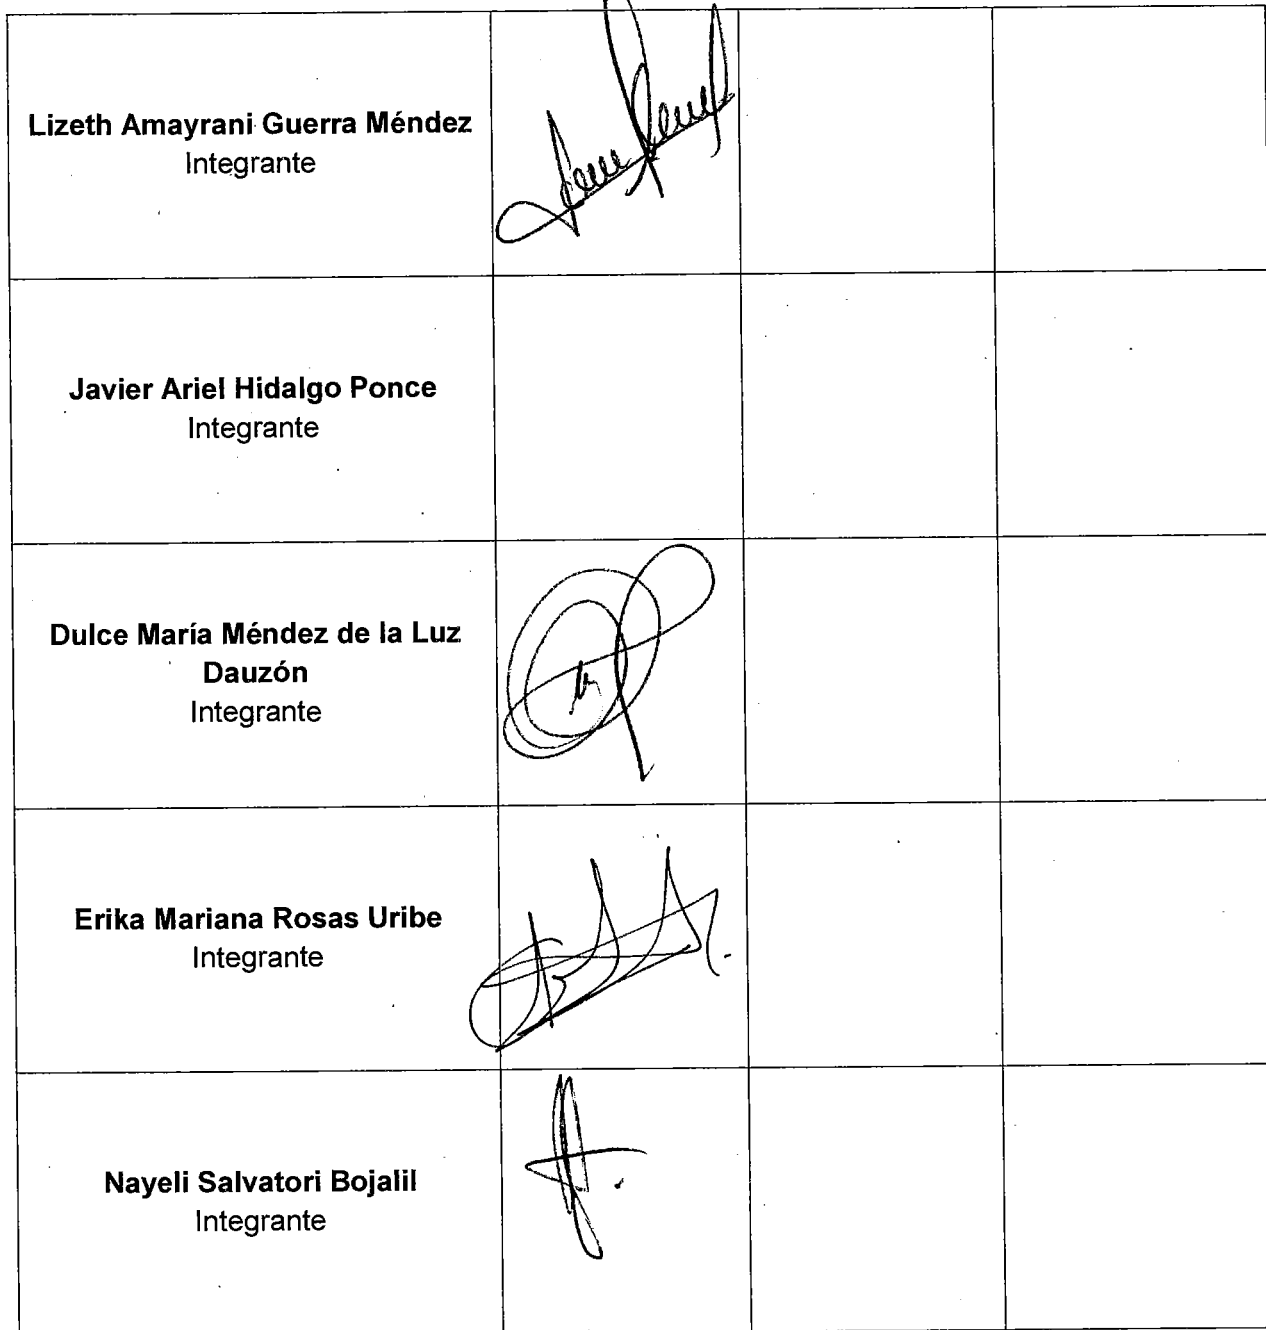 Lizeth Amayrani Guerra Méndez
Integrante
Javier Ariel Hidalgo Ponce
Integrante
Dulce María Méndez de la Luz
Dauzón
Integrante
Erika Mariana Rosas Uribe
Integrante
Nayeli Salvatori Bojalil
Integrante